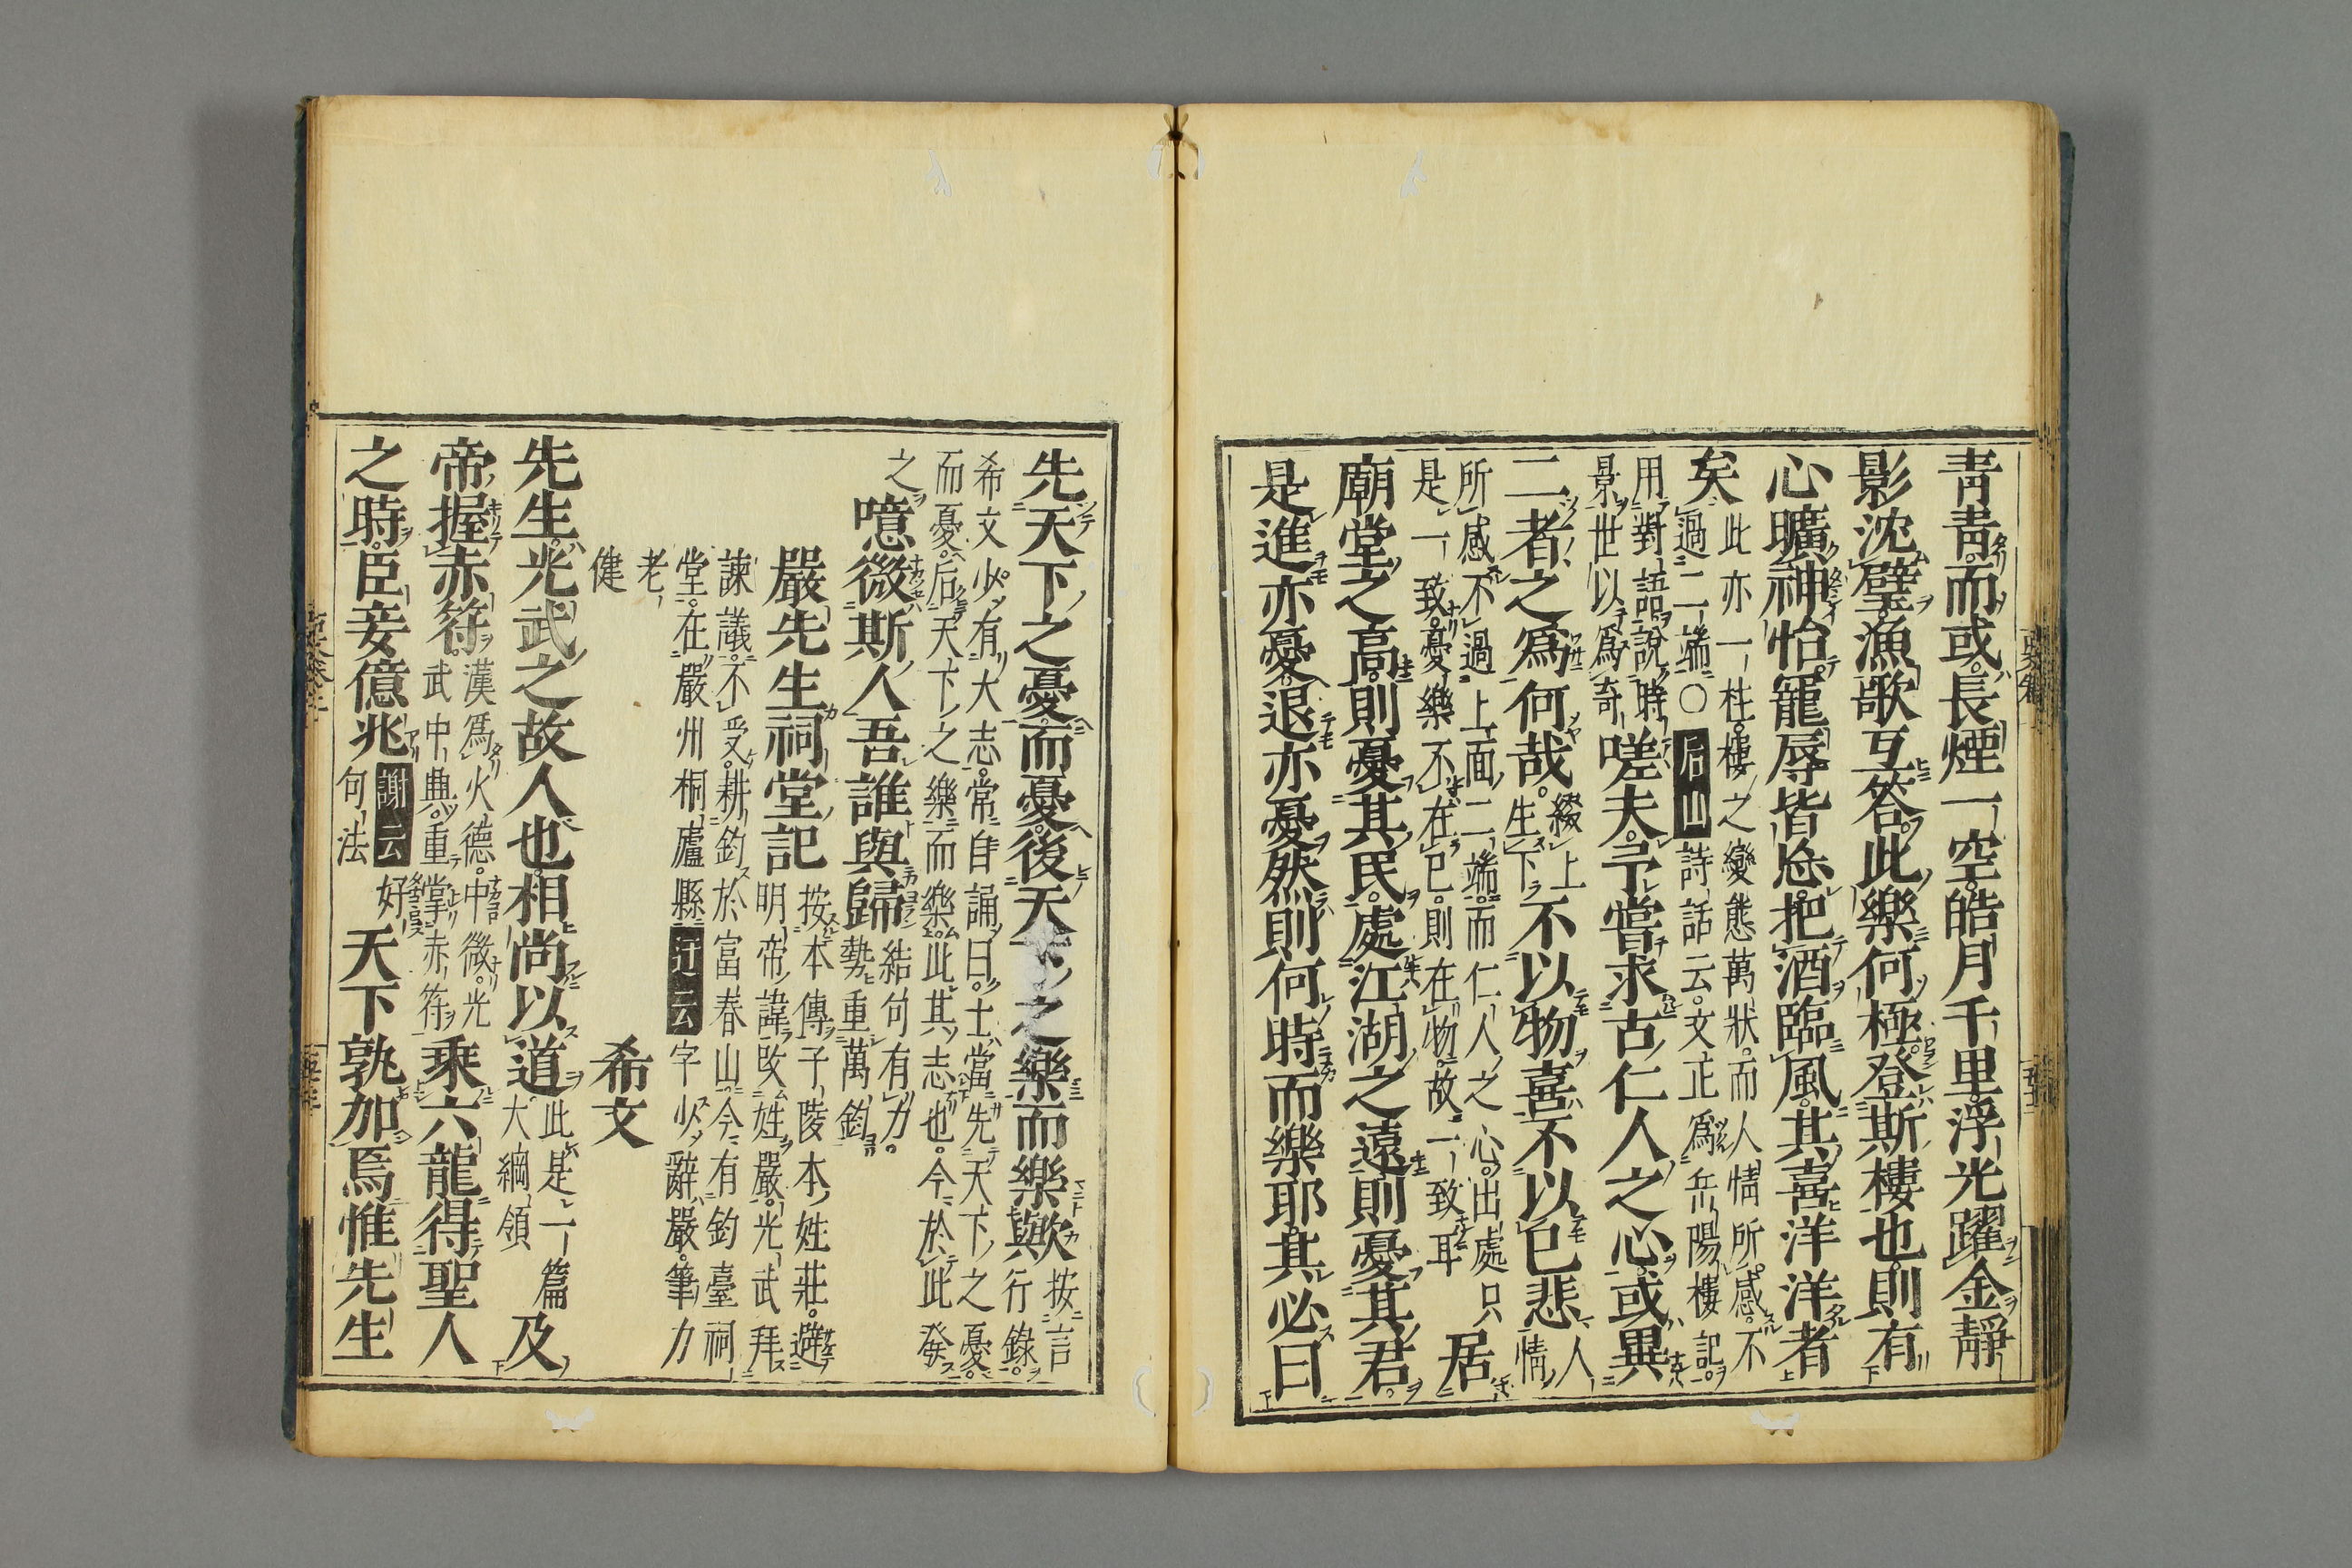 青青而或長煙一空皓月千里浮光躍金靜
影沈璧漁歌互答此樂何極登斯樓也則有
心曠神怡寵辱皆忘把酒臨風其喜洋洋者
矣
此亦一柱樓之變態萬狀而人情所感不
過二端○后山詩話云文正爲岳陽樓記
用對語說時
景世以爲奇
嗟夫予嘗求古仁人之心或異
二者之爲何哉
綴上
生下
不以物喜不以已悲
人
情
所感不過上面二端而仁人之心出處只
是一致憂樂不在已則在物故一致耳
居
廟堂之高則憂其民處江湖之遠則憂其君
是進亦憂退亦憂然則何時而樂耶其必曰
先天下之憂而憂後天下之樂而樂歟
按言
行錄
希文少有大志常自誦曰士當先天下之憂
而憂后天下之樂而樂此其志也今於此發
之
噫微斯人吾誰與歸
結句有力
勢重萬鈞
嚴先生祠堂記
按本傳子陵本姓莊避
明帝諱改姓嚴光武拜
諫議不受耕釣於富春山今有釣臺祠
堂在嚴州桐廬縣
迂云字少辭嚴筆力
老
健
希文
先生光武之故人也相尚以道
此是一篇
大綱領
及
帝握赤符
漢爲火德中微光
武中典重掌赤符
乘六龍得聖人
之時臣妾億兆
謝云好
句法
天下孰加焉惟先生